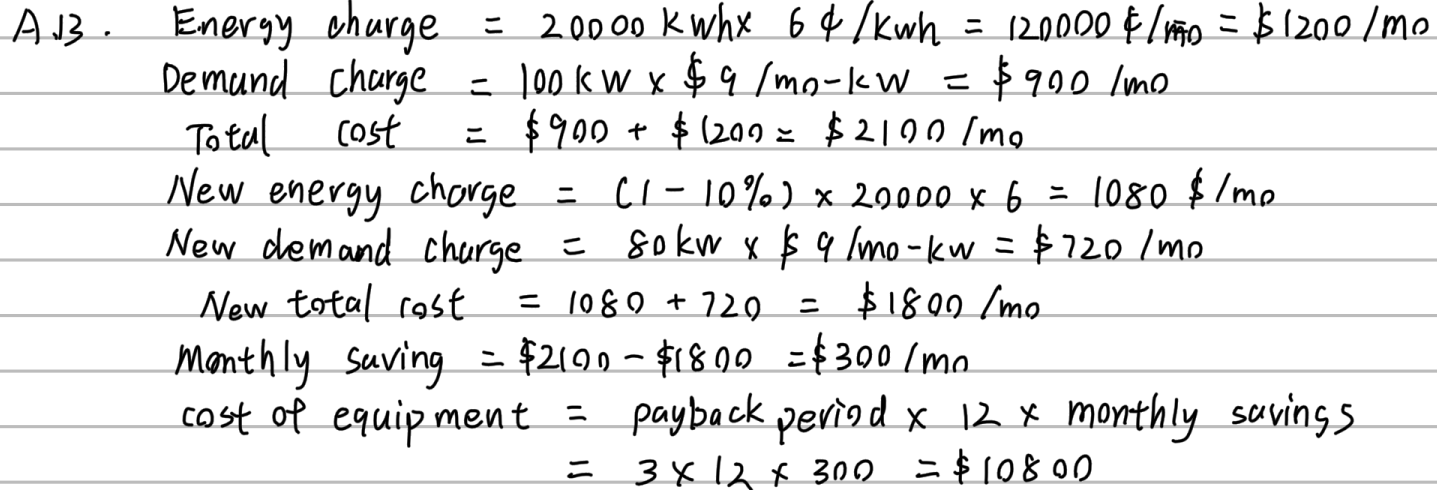 A.13. Energy charge = 20000 kwhx 6 ¢/kwh = 120000 ¢/mo = $1200/mo
Demand charge = 100kW x $9/mo-kW = $900/mo
Total cost = $900 + $1200 = $2100/mo
New energy charge = (1-10%) x 20000 x 6 = 1080 $/mo
New demand charge = 80kw x $9/mo-kw = $720/mo
New total cost = 1080 + 720 = $1800/mo
Monthly saving = $2100 - $1800 = $300/mo
cost of equipment = payback period x 12 x monthly savings
= 3 x 12 x 300 = $10800